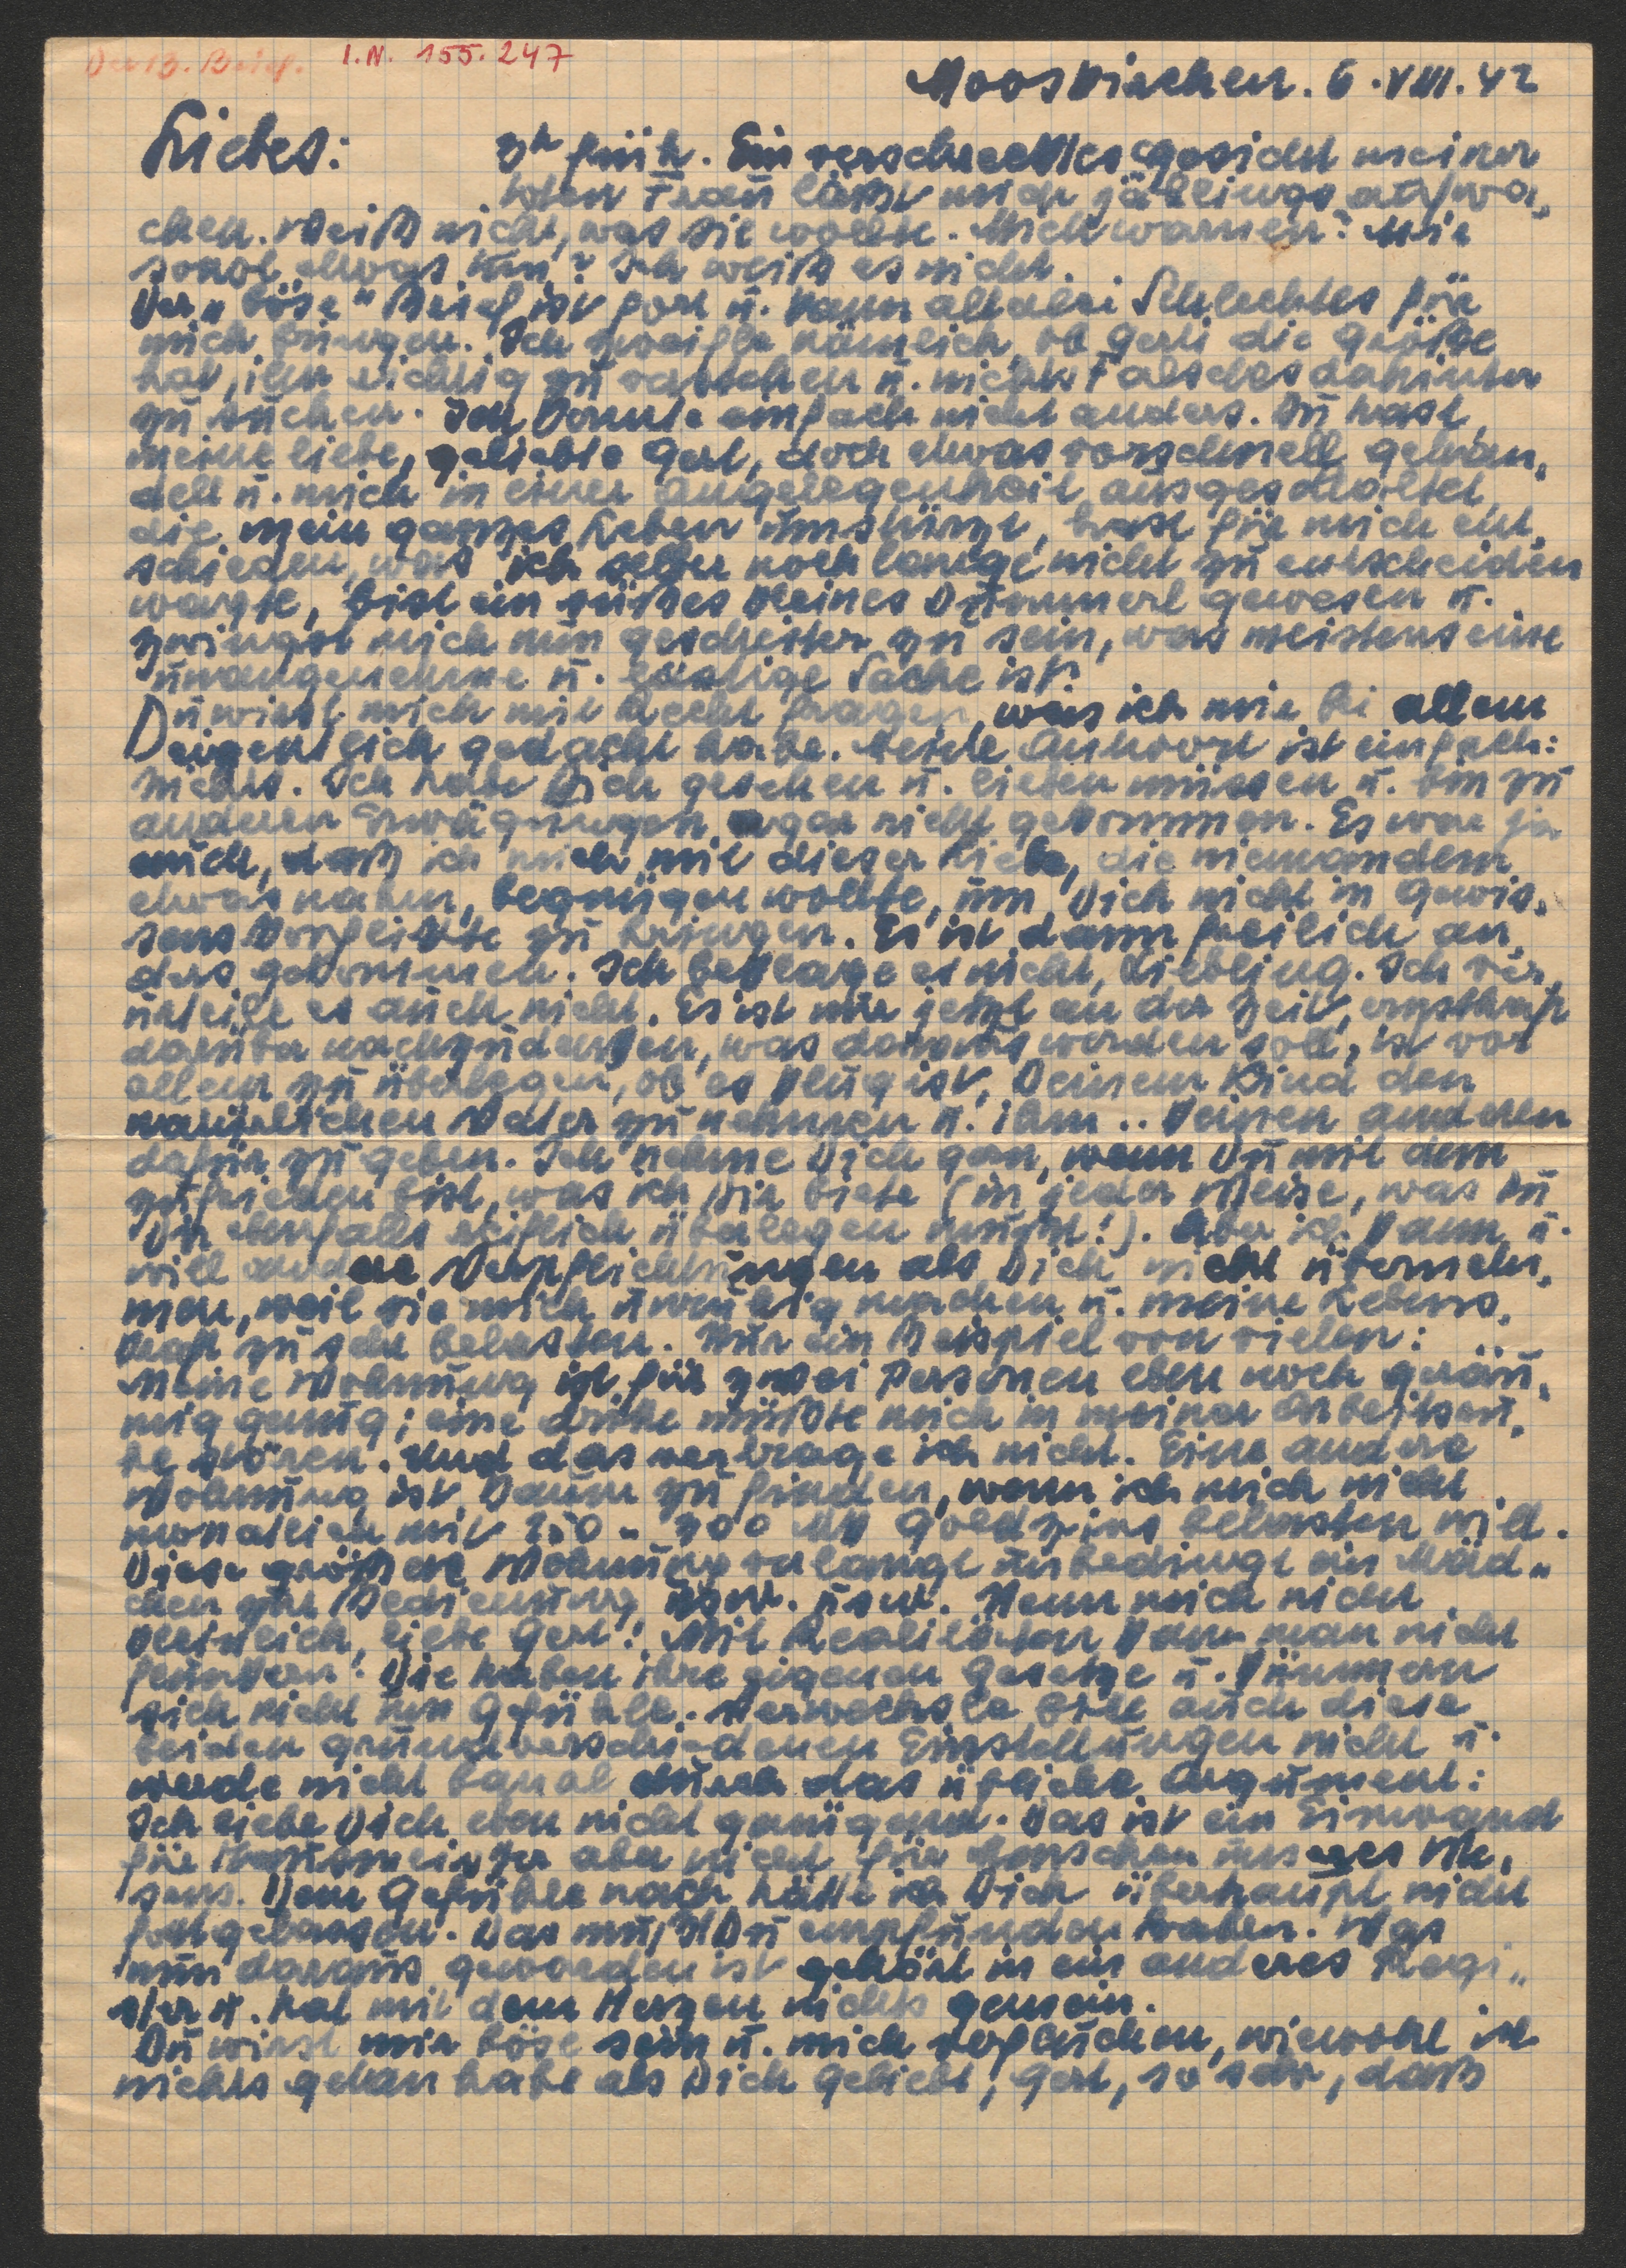 Der 3. Brief. I.N. 155.247
Mooskirchen. 6. VIII. 42
Liebes: 3h früh. Ein verschrecktes Gesicht meiner
toten Frau lässt mich jählings aufwa„
chen. Weiß nicht, was sie wollte. Mich warnen? Mir
sonst etwas tun? Ich weiß es nicht.
Der „böse" Brief ist fort u. kann allerlei Schlechtes für
mich bringen. Ich zweifle nämlich, ob Gerli die Größe
hat, ihn richtig zu verstehen u. nichts Falsches dahinter
zu suchen. Ich konnte einfach nicht anders. Du hast,
meine liebe, geliebte Gerl, doch etwas vorschnell gehan„
delt u. mich in einer Angelegenheit ausgeschaltet,
die mein ganzes Leben umstürzt, hast für mich ent„
schieden, was ich selber noch lange nicht zu entscheiden
wagte, bist ein süßes kleines Dummerl gewesen u.
zwingst mich nun gescheiter zu sein, was meistens eine
unangenehme u. lästige Sache ist.
Du wirst mich mit Recht fragen, was ich mir bei allem
eigentlich gedacht habe. Meine Antwort ist einfach:
nichts. Ich habe Dich gesehen u. lieben müssen u. bin zu
anderen Erwägungen gar nicht gekommen. Es war ja
auch, daß ich mich mit dieser Liebe, die niemandem
etwas nahm, begnügen wollte, um Dich nicht in Gewis„
senskonflikte zu bringen. Es ist dann freilich an„
ders gekommen. Ich beklage es nicht, Liebling. Ich ver„
urteile es auch nicht. Es ist nur jetzt an der Zeit, ernsthaft
darüber nachzudenken, was daraus werden soll, ist vor
allem zu überlegen, ob es klug ist, Deinem Kind den
natürlichen Vater zu nehmen u. ihm .. keinen anderen
dafür zu geben. Ich nehme Dich gern, wenn Du mit dem
zufrieden bist, was ich Dir biete (in jeder Weise, was Du
Dir ebenfalls reiflich überlegen mußt!). Aber ich kann u.
will andere Verpflichtungen als Dich nicht überneh„
men, weil sie mich unruhig machen u. meine Lebens„
kraft zu sehr belasten. Nur ein Beispiel von vielen:
Meine Wohnung ist für zwei Personen eben noch geräu„
mig genug; eine dritte müßte mich in meiner Arbeitsru„
he stören. Und das vertrage ich nicht. Eine andere
Wohnung ist kaum zu finden, wenn ich mich nicht
monatlich mit 250 - 300 MK Goldzins belasten will.
Diese größere Wohnung verlangt unbedingt ein Mäd„
chen zur Bedienung usw. usw. Nenn mich nicht
kleinlich, liebe Gerl! Mit Realitäten kann man nicht
flunkern! Die haben ihre eigenen Gesetze u. kümmern
sich nicht um Gefühle. Verwechsle bitte auch diese
beiden grundverschiedenen Einstellungen nicht u.
werde nicht banal durch das übliche Argument:
Ich liebe Dich eben nicht genügend. Das ist ein Einwand
für aber nicht für Menschen unseres We„
sens. Dem Gefühle nach hätte ich Dich überhaupt nicht
fortgelassen. Das mußt Du empfunden haben. Was
nun daraus geworden ist gehört in ein anderes Regi„
ster u. hat mit dem Herzen nichts gemein.
Du wirst mir böse sein u. mich verfluchen, wiewohl ich
nichts getan habe als Dich geliebt, Gerl, so sehr, dass